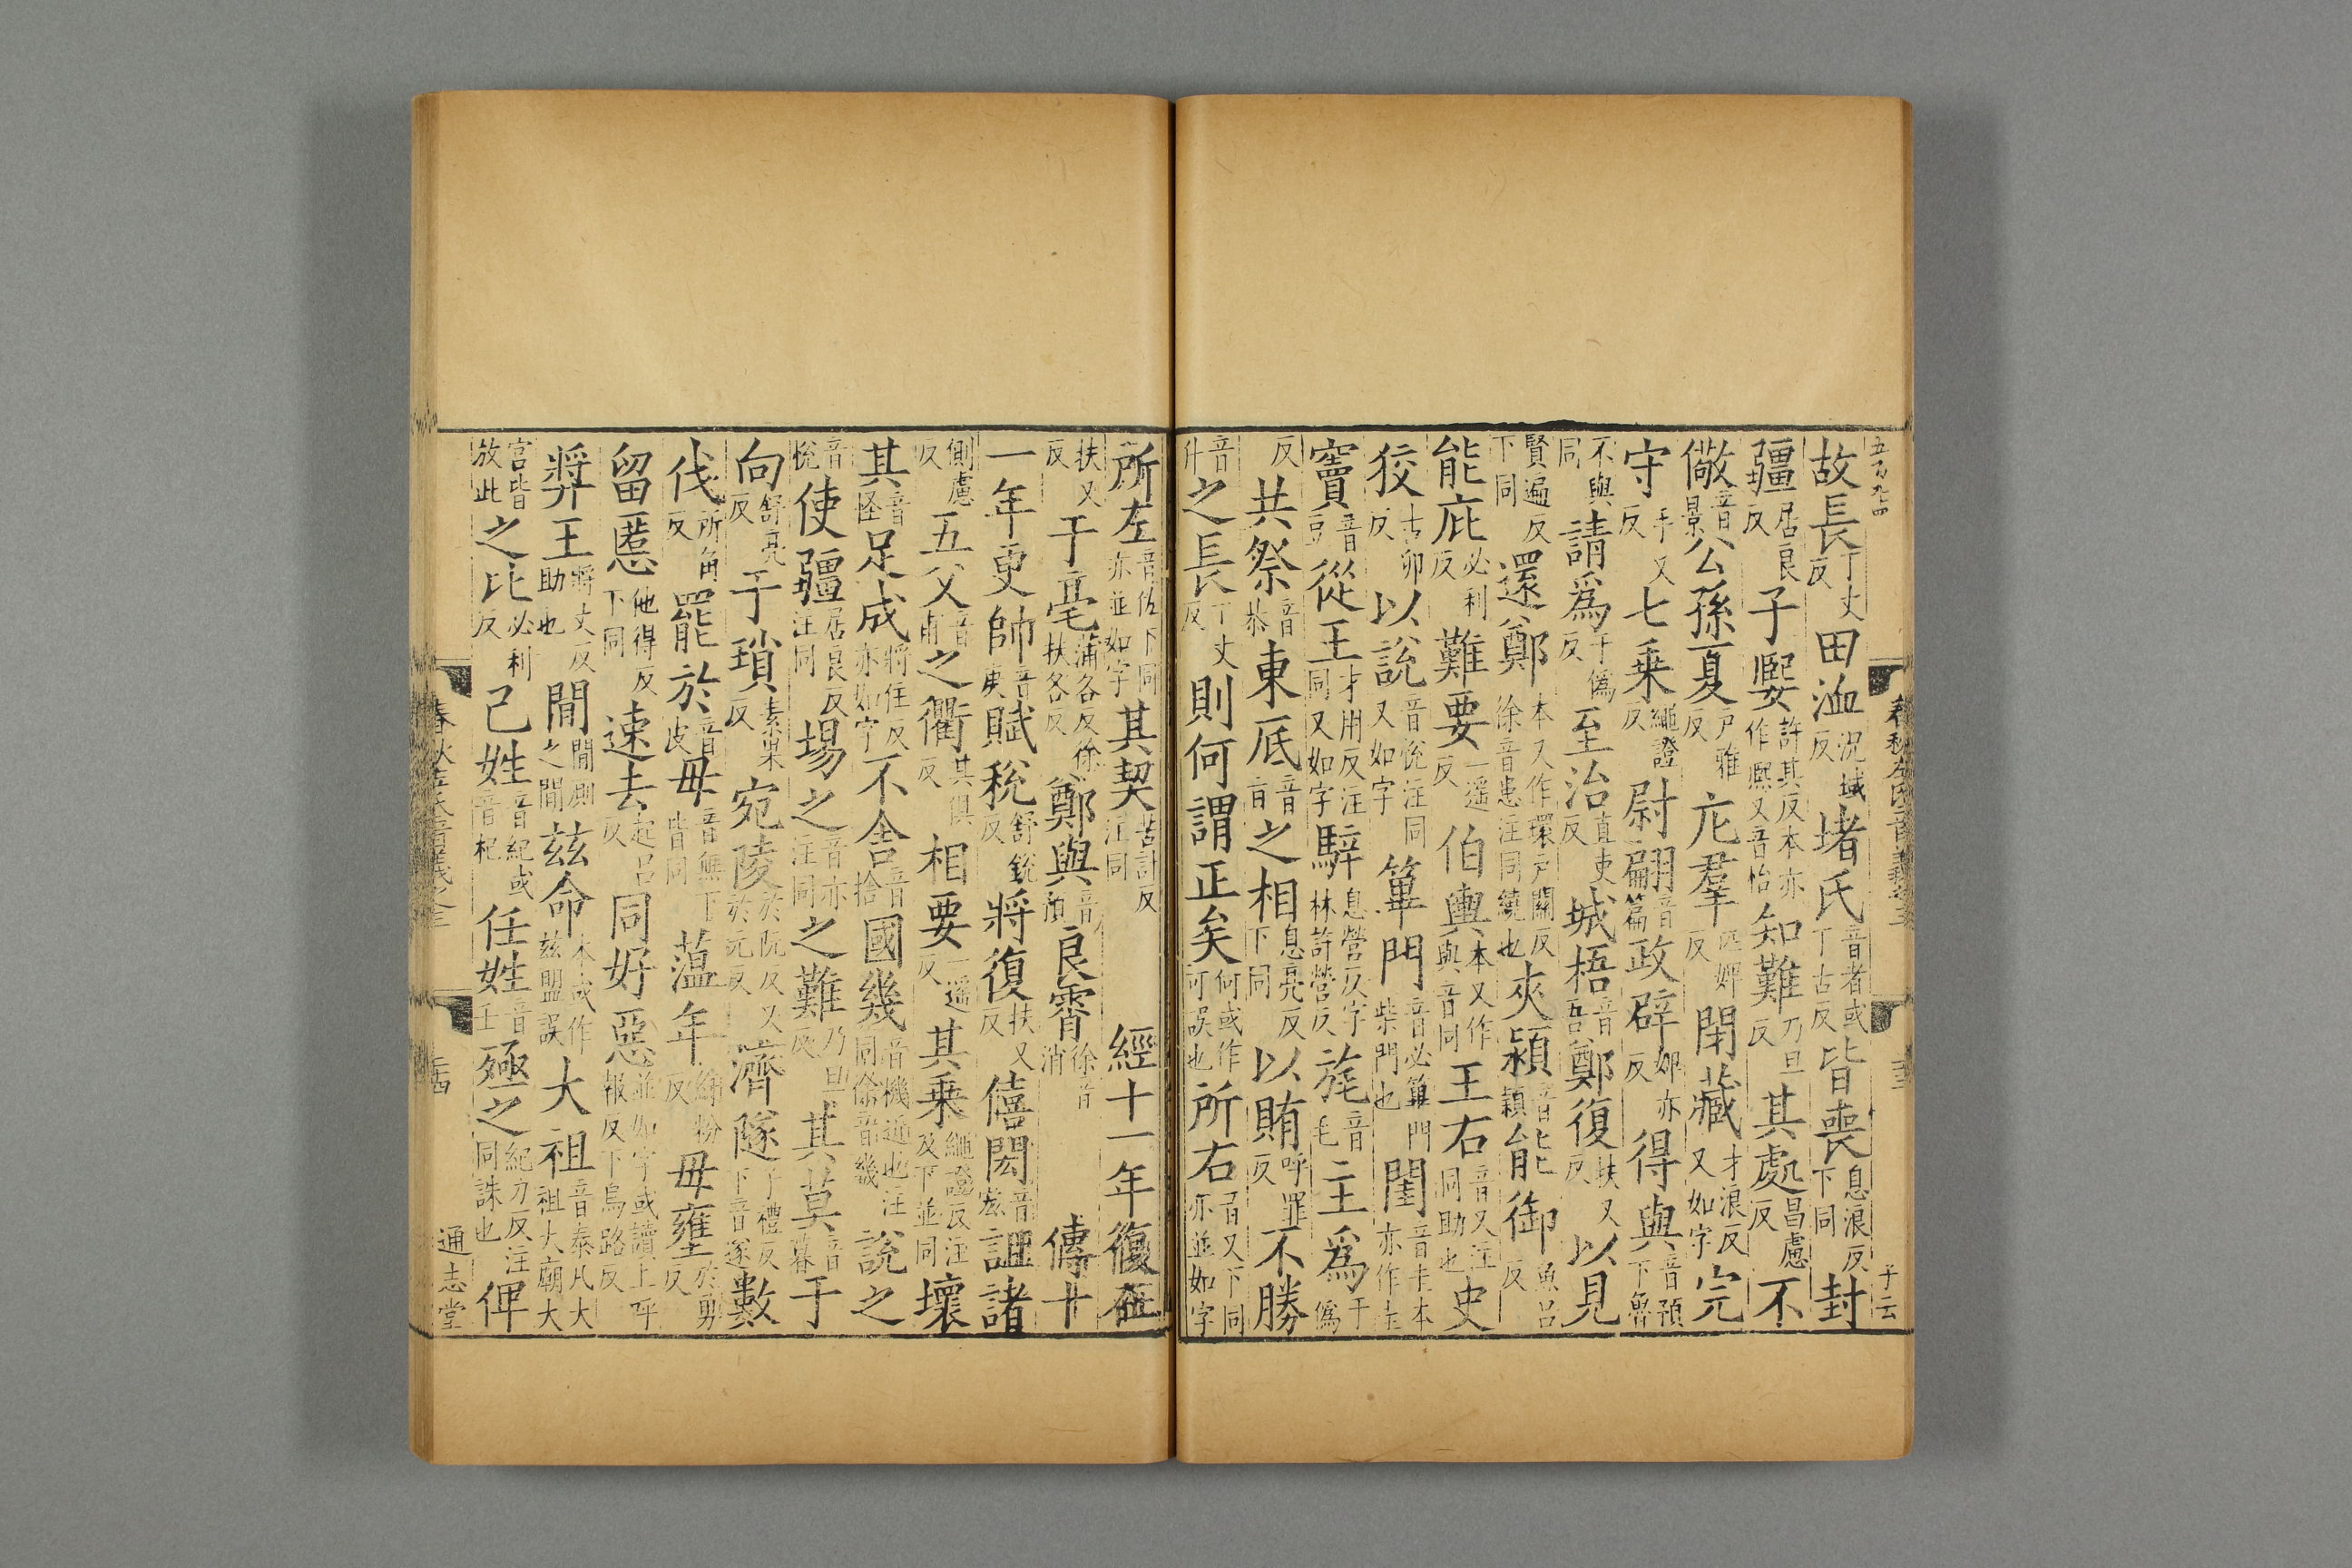 故長丁丈反田洫況域反堵氏音者或丁古反皆喪息浪反下同封
疆居良反子嬰許其反本亦作熙又音怡知難乃旦反其處昌慮反不
儆音景公孫夏戸雅反庀羣匹婢反閉藏才浪反又如字完
守手又反七乗繩證反尉翩音篇政辟婢亦反得與音預下魯
不與同請爲于僞反至治直吏反城梧音吾鄭復扶又反以見
賢遍反下同還鄭本又作環戸關反徐音患注同繞也夾潁音穎能御魚呂反
能庇必利反難要一遥反伯輿本又作與音同王右音又注同助也史
狡古卯反以說音悅注同又如字篳門音必篳門柴門也閨音圭本亦作圭
竇音豆從王才用反注同又如字騂息營反字林許營反旄音毛主爲于僞
反共祭音恭東厎音旨之相息亮反下同以賄呼罪反不勝
音升之長丁丈反則何謂正矣何或作可誤也所右音又下同亦並如字
所左音佐下同亦並如字其契苦計反注同經十一年復在
扶又反于亳蒲各反徐扶各反鄭與音預良霄徐音消傳十
一年更帥音庚賦稅舒銳反將復扶又反僖閎音宏詛諸
側慮反五父音甫之衢其俱反相要一遥反其乗繩證反注及下並同壞
其音怪足成將住反亦如字不舍音捨國幾音機近也注同徐音畿說之
音悅使疆居良反注同埸之音亦注同之難乃旦反其莫音暮于
向舒亮反于瑣素果反宛陵於阮反又於元反濟隧子禮反下音遂數
伐所角反罷於音皮毋音無下皆同薀年紆粉反毋壅於勇反
留慝他得反下同速去起呂反同好惡並如字或讀上呼報反下烏路反
奬王將丈反助也閒閒厠之閒茲命本或作茲盟誤大祖音泰凡大祖大廟大
宫皆放此之比必利反己姓音紀或音杞任姓音壬殛之紀力反注同誅也俾
通志堂